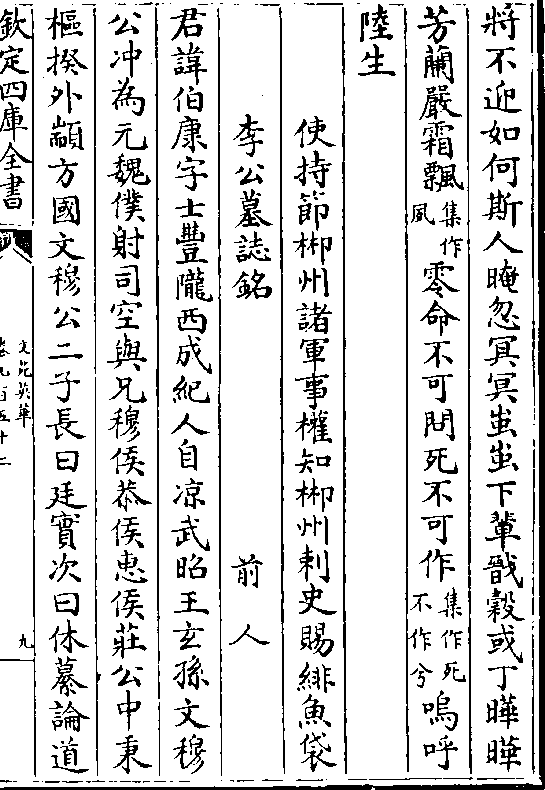 將不迎如何斯人晻忽冥冥蚩蚩下輩戩穀或丁曄曄
芳蘭嚴霜飄集作風零命不可問死不可作集作死不作兮嗚呼
陸生
使持節郴州諸軍事權知郴州刺史賜緋魚袋
李公墓誌銘 前人
君諱伯康字士豐隴西成紀人自凉武昭王玄孫文穆
公冲為元魏僕射司空與兄穆侯恭侯惠侯莊公中秉
樞揆外顓方國文穆公二子長曰廷實次曰休纂論道
欽定四庫全書
文苑英華
卷九百五十二
九